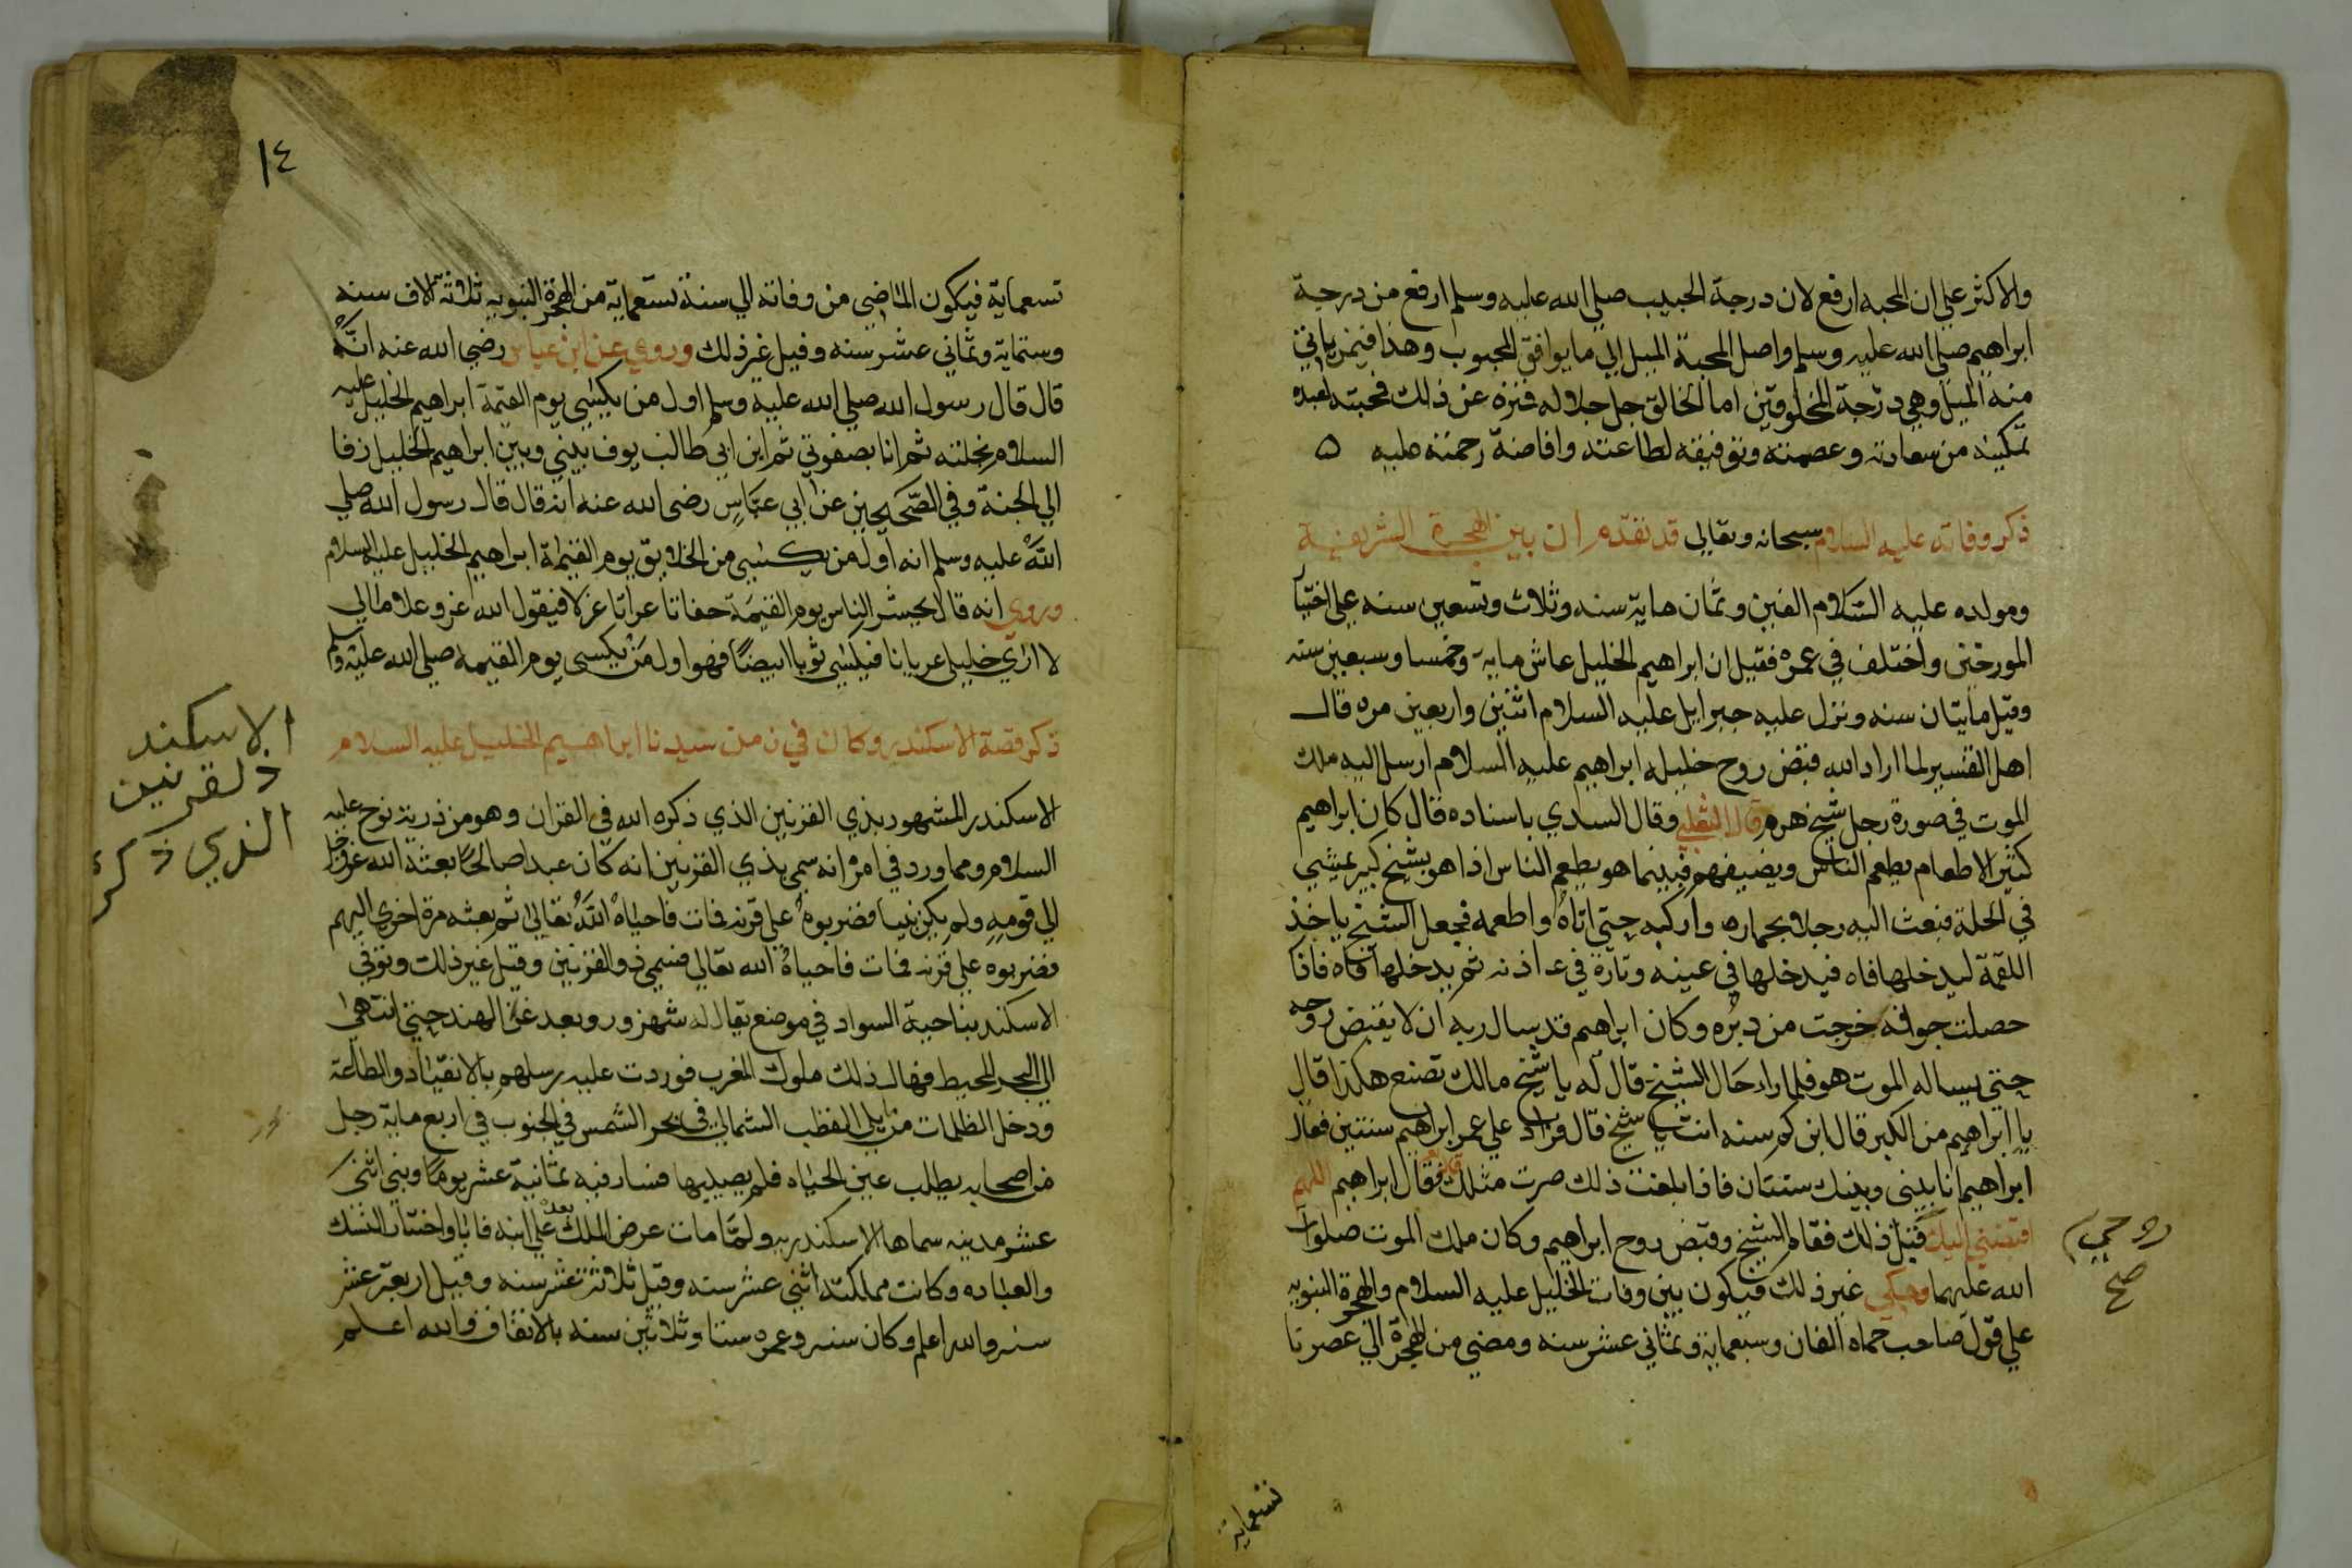 والاكثر علي ان المحبه ارفع لان درجة الحبيب صلي الله عليه وسلم ارفع من درجة
ابراهيم صلي الله عليه وسلم واصل المحبة الميل الي ما يوافق المحبوب وهذا فيمن ياتي
منه الميل وهي درجة المخلوقين اما الخالق جل جلاله فنزه عن ذلك فمحبته لعبده
تمكينه من سعادته وعصمته وتوفيقه لطاعته وافاضة رحمته عليه ه
ذكر وفاته عليه السلام سبحانه وتعالي قد تقدم ان بين الهجرة الشريفية
ومولده عليه السلام الفين وثمان ماية سنه وثلاث وتسعين سنه علي اختيا
المورخين واختلف في عمره فقيل ان ابراهيم الخليل عاش ماية وخمسا وسبعين سنه
وقيل مايتان سنه ونزل عليه جبرايل عليه السلام اثنين واربعين مره قال
اهل التفسير لما اراد الله قبض روح خليله ابراهيم عليه السلام ارسل اليه ملك
الموت في صورة رجل شيخ هرم قال الثعلبي وقال السدي باسناده قال كان ابراهيم
كثير الاطعام يطعم الناس ويضيفهم فبينما هو يطعم الناس اذا هو بشيخ كبير يمشي
في الحلة فبعث اليه رجلا بحماره واركبه حتي اتاه واطعمه فجعل الشيخ ياخذ
اللقمة ليدخلها فاه فيدخلها في عينيه وتارة في اذنه ثم يدخلها فاه فاذا
حصلت جوافه خرجت من دبره وكان ابراهيم قد سال ربه ان لا يقبض روحه
حتي يساله الموت هو فلما راد حال الشيخ قال له يا شيخ مالك تصنع هكذا قال
يا ابراهيم من الكبر قال ابن كم سنه انت يا شيخ قال فزاد علي عمر ابراهيم سنتين فقال
ابراهيم انا بيني وبينك سنتان فاذا بلغت ذلك صرت مثلك قال نعم فقال ابراهيم اللهم
اقبضني اليك قبل ذلك فقام الشيخ وقبض روح ابراهيم وكان ملك الموت صلوات
الله عليهما وحكي غير ذلك فيكون بين وفات الخليل عليه السلام والهجرة النبويه
علي قول صاحب حماه الفان وسبعماية وثماني عشر سنه ومضي من الهجرة الي عصرنا
روحي
صح
تسعماية
١٤
تسعماية فيكون الماضي من وفاته الي سنة تسعماية من الهجرة النبويه ثلاثة آلاف سنه
وستماية وثماني عشر سنه وقيل غير ذلك وروي عن ابن عباس رضي الله عنه انه
قال قال رسول الله صلي الله عليه وسلم اول من يكسي يوم القيمة ابراهيم الخليل عليه
السلام بخلته ثم انا بصفوتي ثم ابن ابي طالب يوف بيني وبين ابراهيم الخليل زفا
الي الجنة وفي الصحيحين عن ابي عباس رضي الله عنه انه قال قال رسول الله صلي
الله عليه وسلم انه اول من يكسي من الخلايق يوم القيمة ابراهيم الخليل عليه السلام
وروي انه قال يحشر الناس يوم القيمة حفاتا عراتا غزلا فيقول الله عز وعلا مالي
لا اري خليلي عريانا فيكسي ثوبا ابيضا فهو اول من يكسي يوم القيمه صلي الله عليه وسلم
ذكر قصة الاسكندر وكان في زمن سيدنا ابراهيم الخليل عليه السلام
الاسكندر المشهور بذي القرنين الذي ذكره الله في القران وهو من ذرية نوح عليه
السلام ومما ورد في امره انه سمي بذي القرنين انه كان عبدا صالحا بعثه الله عز وجل
الي قومه ولم يكن نبيا فضربوه علي قرنه فمات فاحياه الله تعالي ثم بعثه مرة اخري اليهم
فضربوه علي قرنه فمات فاحياه الله تعالي فسمي ذو القرنين وقيل غير ذلك وتوفي
الاسكندر بناحية السواد في موضع يقال له شهرزور وبعد غزا الهند حتي انتهي
الي البحر المحيط فهال ذلك ملوك المغرب فوردت عليه رسلهم بالانقياد والطاعة
ودخل الظلمات من يلي القطب الشمالي في بحر الشمس في الجنوب في اربع ماية رجل
من اصحابه يطلب عين الحياه فلم يصيبها فسار فيه ثمانية عشر يوما وبني اثني
عشر مدينه سماها الاسكندريه ولما مات عرض الملك بعده علي ابنه فابا واختار النسك
والعباده وكانت مملكته اثني عشر سنه وقيل ثلاثة عشر سنه وقيل اربعة عشر
سنه والله اعلم وكان سنه وعمره ستا وثلاثين سنه بالاتفاق والله اعلم
الاسكند
ذلقرنين
الذي ذكره